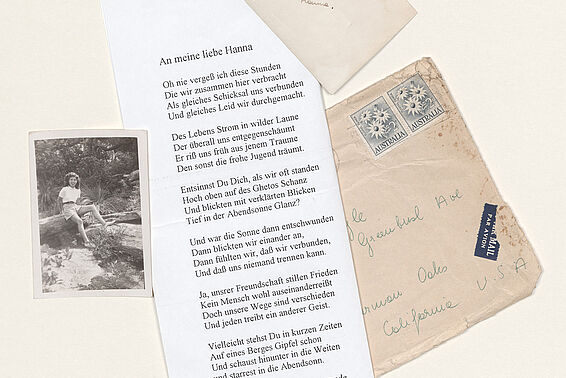 Hanna.
An meine liebe Hanna
Oh nie vergeß ich diese Stunden
Die wir zusammen hier verbracht
Als gleiches Schicksal uns verbunden
Und gleiches Leid wir durchgemacht.
Des Lebens Strom in wilder Laune
Der überall uns entgegenschäumt
Er riß uns früh aus jenem Traume
Den sonst die frohe Jugend träumt.
Entsinnst Du Dich, als wir oft standen
Hoch oben auf des Ghetos Schanz
Und blickten mit verklärten Blicken
Tief in der Abendsonne Glanz?
Und war die Sonne dann entschwunden
Dann blickten wir einander an,
Dann fühlten wir, daß wir verbunden,
Und daß uns niemand trennen kann.
Ja, unsrer Freundschaft stillen Frieden
Kein Mensch wohl auseinanderreißt
Doch unsre Wege sind verschieden
Und jeden treibt ein anderer Geist.
Vielleicht stehst Du in kurzen Zeiten
Auf eines Berges Gipfel schon
Und schaust hinunter in die Weiten
und starrest in die Abendsonn.
AUSTRALIA
AUSTRALIA
AIR MAIL
PAR AVION
Oaks
California
U.S.A